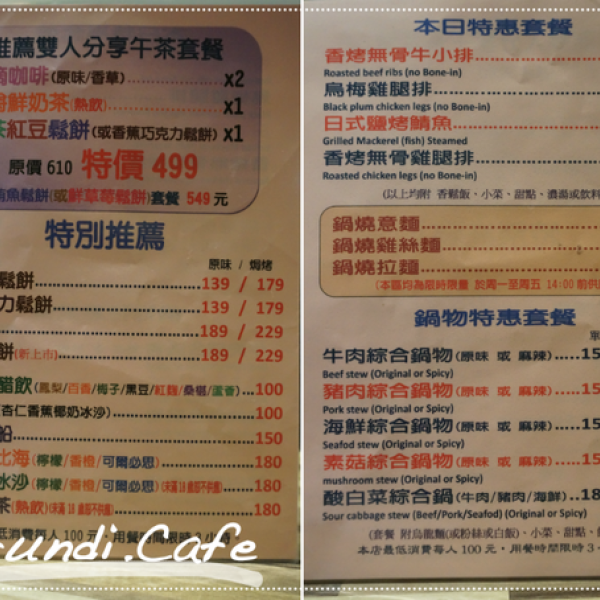 推薦雙人分享午茶套餐
滴咖啡(原味/香草) x2
鮮奶茶(熱飲) x1
紅豆鬆餅(或香蕉巧克力鬆餅) x1
原價 610 特價 499
鮪魚鬆餅(或鮮草莓鬆餅)套餐 549 元
特別推薦
原味 / 焗烤
鬆餅 139 / 179
力鬆餅 139 / 179
189 / 229
餅(新上市) 189 / 229
醋飲(鳳梨/百香/梅子/黑豆/紅麴/桑椹/蘆薈) 100
杏仁香蕉椰奶冰沙 100
船 150
比海(檸檬/香橙/可爾必思) 180
冰沙(檸檬/香橙/可爾必思)(未滿 18 歲恕不供應) 180
茶(熱飲)(未滿 18 歲恕不供應) 180
低消費每人 100 元，用餐時間限時 3 小時
undi.Cafe
本日特惠套餐
香烤無骨牛小排
Roasted beef ribs (no Bone-in)
烏梅雞腿排
Black plum chicken legs (no Bone-in)
日式鹽烤鯖魚
Grilled Mackerel (fish) Steamed
香烤無骨雞腿排
Roasted chicken legs (no Bone-in)
(以上均附 香鬆飯、小菜、甜點、濃湯或飲料
鍋燒意麵
鍋燒雞絲麵
鍋燒拉麵
(本區均為限時限量 於周一至周五 14:00 前供
鍋物特惠套餐
單
牛肉綜合鍋物(原味 或 麻辣) 15
Beef stew (Original or Spicy)
豬肉綜合鍋物(原味 或 麻辣) 15
Pork stew (Original or Spicy)
海鮮綜合鍋物(原味 或 麻辣) 15
Seafod stew (Original or Spicy)
素菇綜合鍋物(原味 或 麻辣) 15
mushroom stew (Original or Spicy)
酸白菜綜合鍋(牛肉/豬肉/海鮮) 18
Sour cabbage stew (Beef/Pork/Seafod) (Original)
(套餐 附烏龍麵(或粉絲或白飯)、小菜、甜點、
本店最低消費每人 100 元，用餐時間限時 3